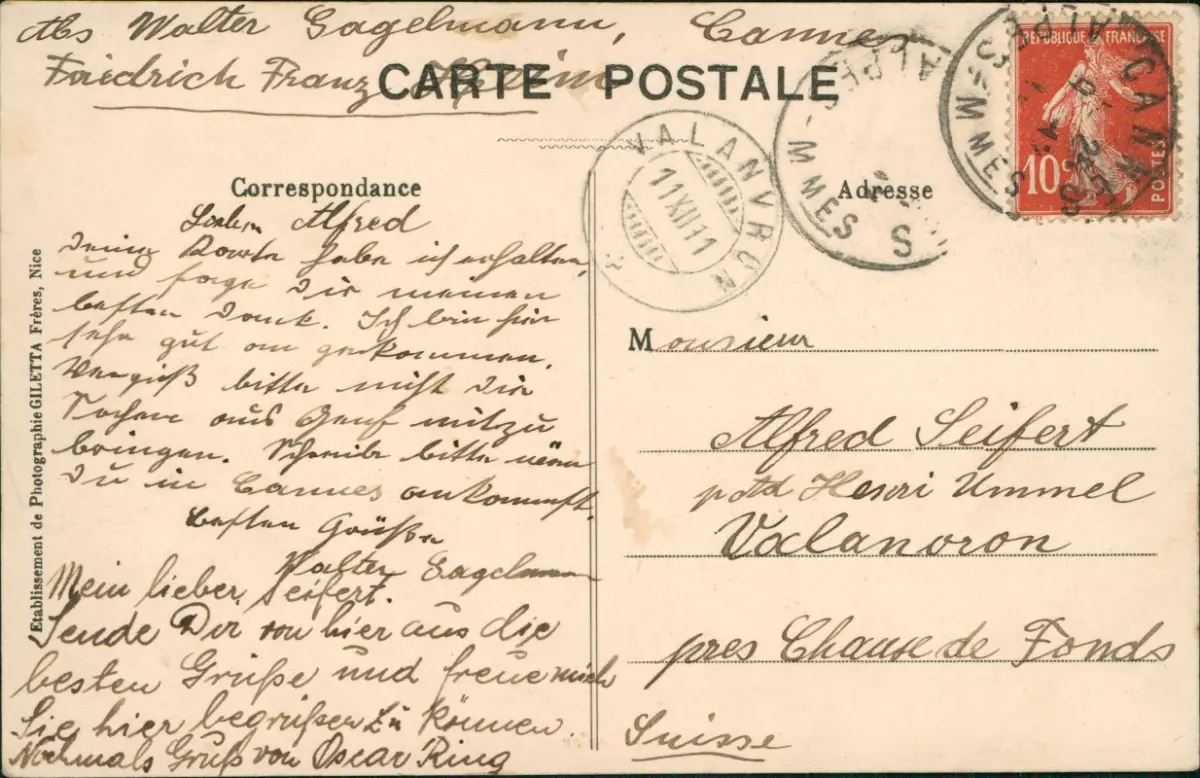 Abs Walter Gagelmann, Cannes
Friedrich Franz Heim
CARTE POSTALE
VALANVRON
11 XII 11
ALPES-MMES
CANNES
ALPES-MMES
REPUBLIQUE FRANÇAISE
10c
POSTES
Correspondance
Lieber Alfred
Deine Karte habe ich erhalten,
und sage Dir meinen
besten Dank. Ich bin hier
sehr gut angekommen.
Vergiß bitte nicht die
Sachen aus Genf mitzu
bringen. Schreibe bitte wenn
Du in Cannes ankommst.
besten Grüße
Walter Gagelmann
Mein lieber Seifert.
Sende Dir von hier aus die
besten Grüße und freue mich
Sie hier begrüßen zu können.
Nochmals Gruß von Oscar Ring
Etablissement de Photographie GILETTA Frères, Nice
Adresse
Monsieur
Alfred Seifert
Henri Ummel
Valanvron
pres Chause de Fonds
Suisse